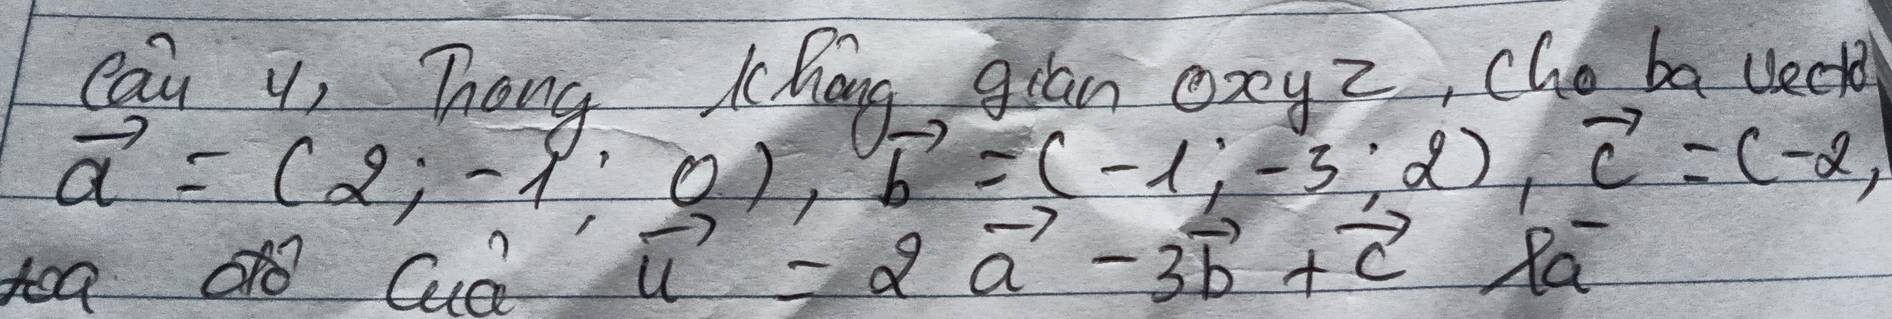 Câu 4, Trong không gian oxyz, cho ba vectơ
a⃗ = (2; -1; 0), b⃗ = (-1; -3; 2), c⃗ = (-2,
tọa độ của u⃗ = 2a⃗ - 3b⃗ + c⃗ là